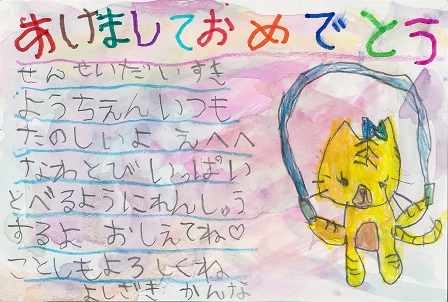 あけましておめでとう
せんせいだいすき
ようちえんいつも
たのしいよ えへへ
なわとびいっぱい
とべるようにれんしゅう
するよ おしえてね♡
ことしもよろしくね
よしざき かんな